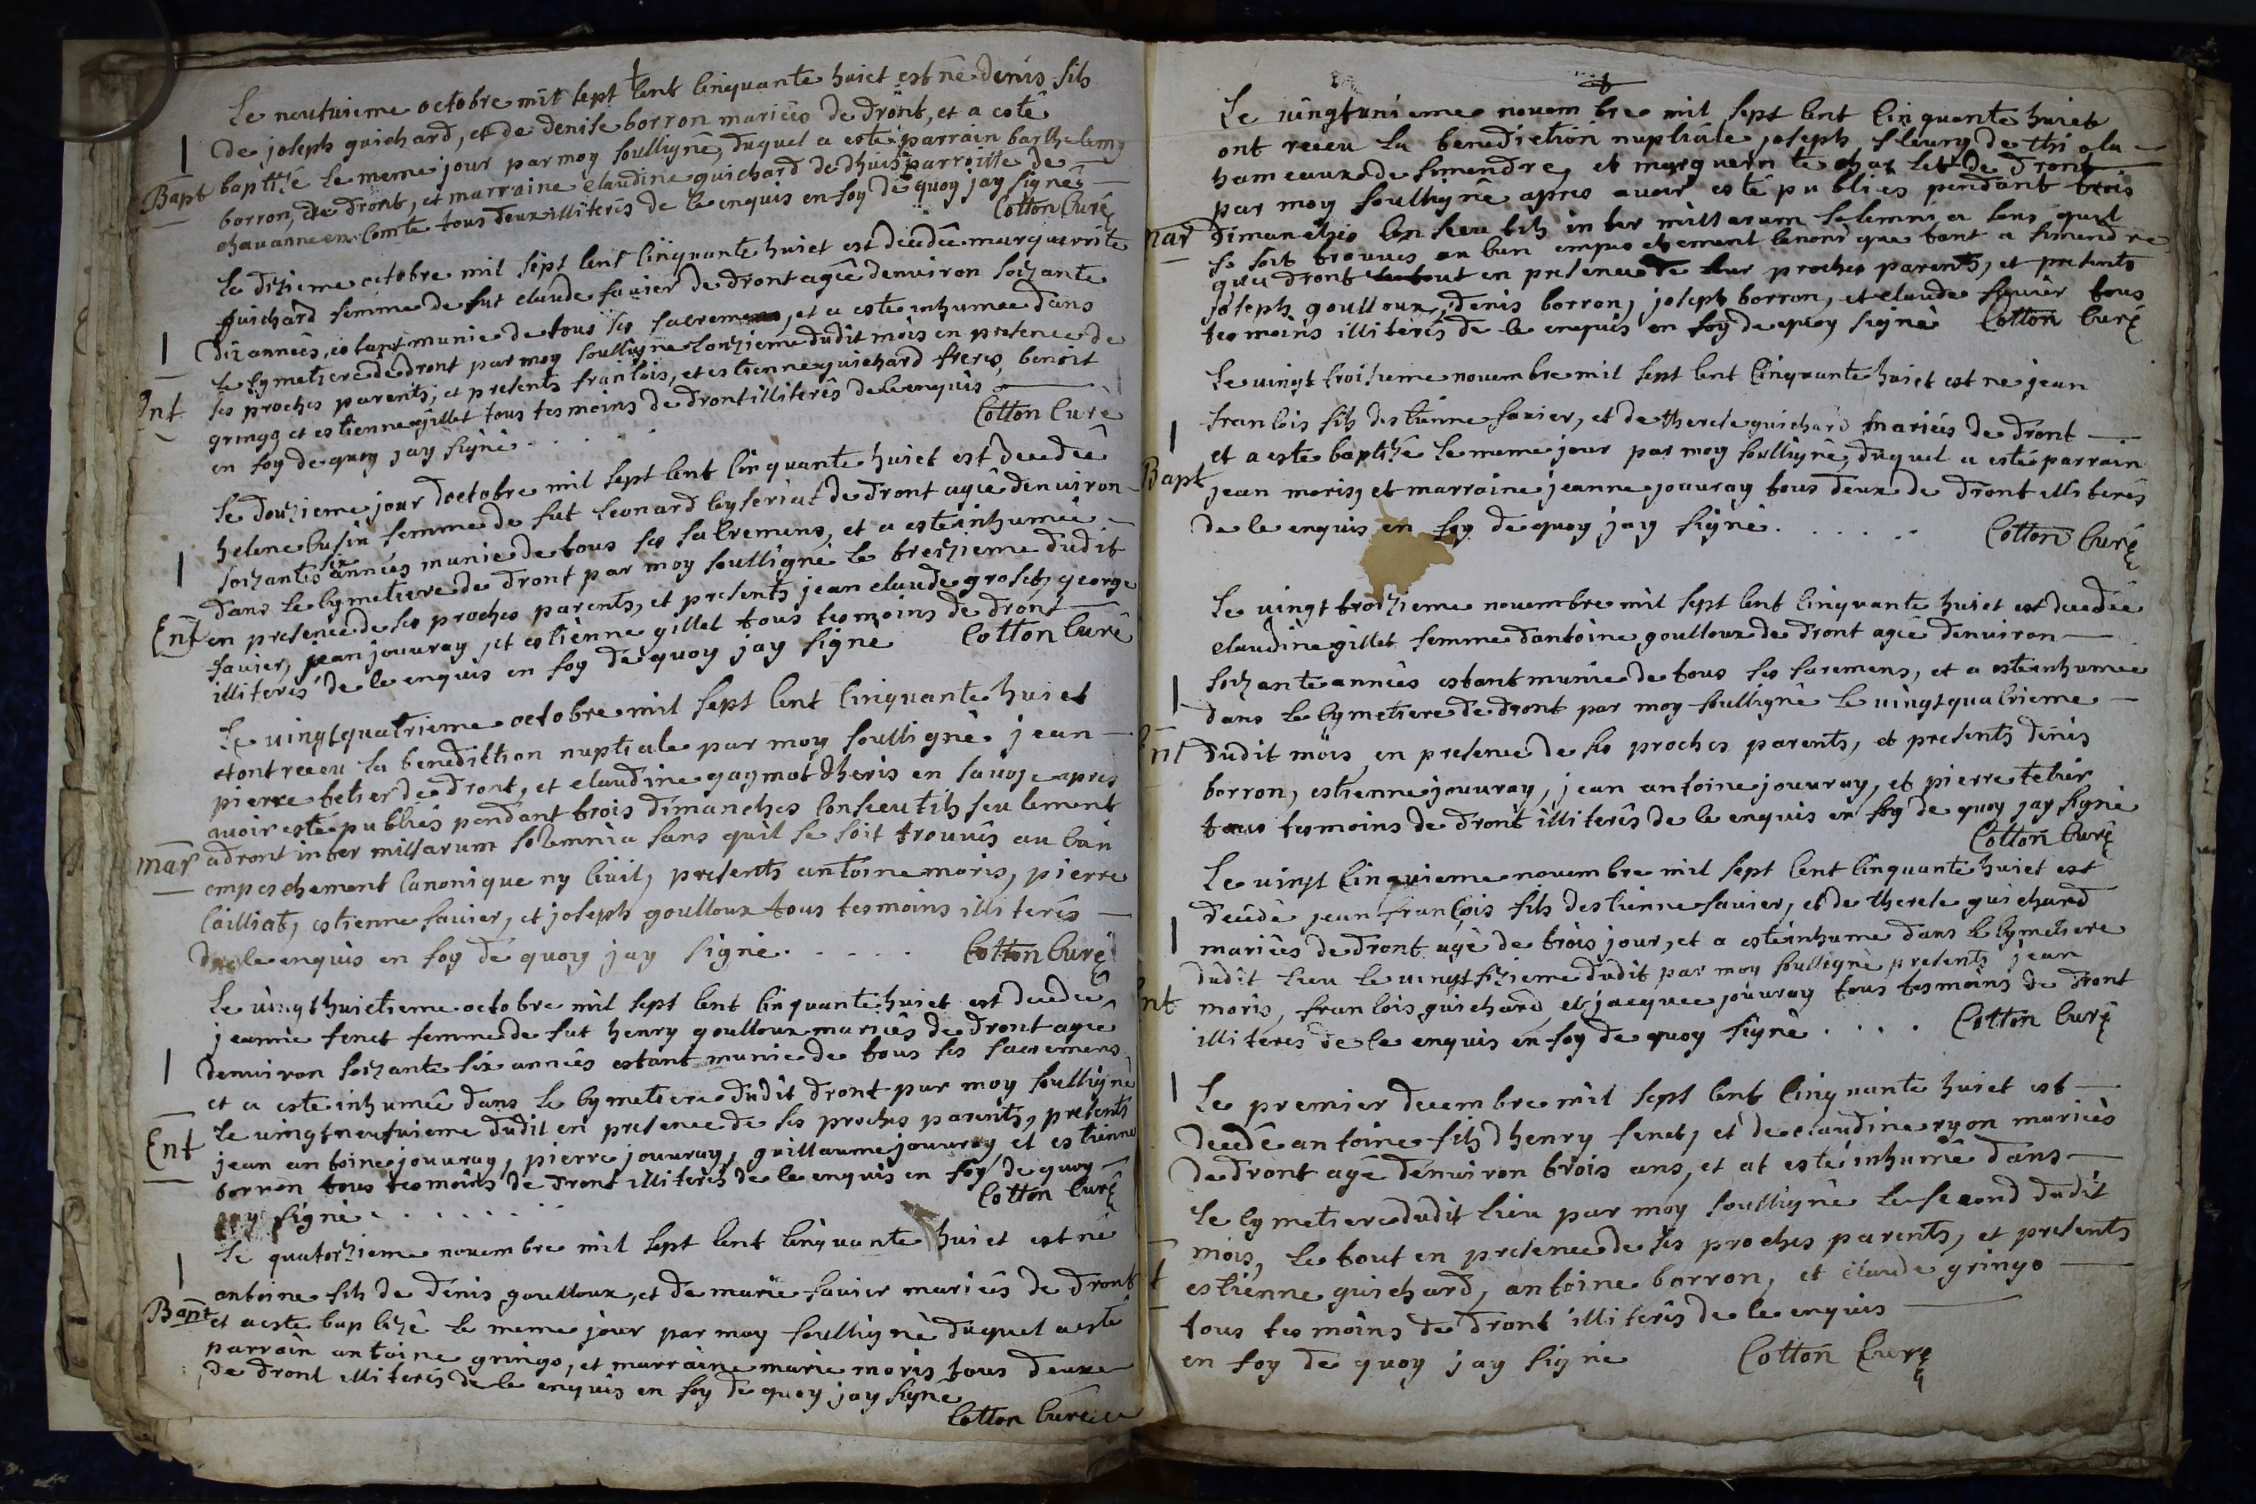 Le neufuieme octobre mil sept Cent Cinquante huict est né denis fils
de joseph guichard, et de denise borron mariées de dront, et a esté
Bapt baptizé le meme jour par moy soussigné, duquel a esté parrain barthelemy
borron, de dront, et marraine claudine guichard de dhuis parroisse de
chauanne en Comté tous deux illiterés de ce enquis en foy de quoy jay signé
Cotton Curé
Le dizieme octobre mil sept Cent Cinquante huict est decedée marguerite
guichard femme de fut claude fauier de dront agée denuiron soizante
dix années, estant munie de tous ses sacremens, et a esté inhumée dans
Ent le Cymetiere de dront par moy soussigné Lonzieme dudit mois en presence de
ses proches parents, et presents francois, et estienne guichard freres, benoit
gringo et estienne gillet tous tesmoins de dront illiterés de ce enquis
en foy de quoy jay signé . . . . Cotton Curé
Le douzieme jour doctobre mil sept Cent Cinquante huict est decedée
helene Cusin femme de fut Leonard Ceyseriat de dront agée denuiron
soizante six années munie de tous ses sacremens, et a esté inhumée
dans le Cymetiere de dront par moy soussigné le treizieme dudit
Ent en presence de ses proches parents, et presents jean claude groset, george
fauier, jean jouuray, et estienne gillet tous tesmoins de dront
illiterés de ce enquis en foy de quoy jay signé Cotton Curé
Le uingt quatrieme octobre mil sept Cent Cinquante huict
et ont receu la benediction nuptiale par moy soussigné jean
pierre tetier de dront, et claudine gagmot dheris en sauoje apres
auoir esté publiés pendant trois dimanches Consecutifs seulement
mar a dront inter missarum solemnia sans quil se soit trouués aucun
empeschement Canonique ny Ciuil, presents antoine moris, pierre
Cailliat, estienne fauier, et joseph goulloux tous tesmoins illiterés
de ce enquis en foy de quoy jay signé . . . . . Cotton Curé
Le uingt huictieme octobre mil sept Cent Cinquante huict est decedée
jeanne fenet femme de fut henry goulloux mariées de dront agée
denuiron soizante six années estant munie de tous ses sacremens
et a esté inhumée dans le Cymetiere dudit dront par moy soussigné
Ent le uingt neufuieme dudit en presence de ses proches parents, presents
jean antoine jouuray, pierre jouuray, guillaume jouuray, et estienne
borron tous tesmoins de dront illiterés de ce enquis en foy de quoy
jay signé . . . . . . . . Cotton Curé
Le quatorzieme nouembre mil sept Cent Cinquante huict est né
antoine fils de denis goulloux, et de marie fauier mariés de dront
Bapt et a esté baptizé le meme jour par moy soussigné duquel a esté
parrain antoine gringo, et marraine marie moris tous deux
de dront illiterés de ce enquis en foy de quoy jay signé
Cotton Curé
Le uingtunieme nouembre mil sept Cent Cinquante huict
ont receu la benediction nuptiale joseph fleury de
hameaux de simendre, et marguerite de dront
par moy soussigné apres auoir esté publiés pendant trois
mar dimanches Consecutifs inter missarum solemnia sans quil
se soit trouués aucun empeschement Canonique tant a simendre
qua dront le tout en presence de leur proches parents, et presents
joseph goulloux, denis borron, joseph borron, et claude fauier tous
tesmoins illiterés de ce enquis en foy de quoy signé Cotton Curé
Le uingt troisieme nouembre mil sept Cent Cinquante huict est né jean
francois fils destienne fauier, et de therese guichard mariés de dront
et a esté baptizé le meme jour par moy soussigné, duquel a esté parrain
Bapt jean moris, et marraine jeanne jouuray tous deux de dront illiterés
de ce enquis en foy de quoy jay signé . . . . . Cotton Curé
Le uingt troizieme nouembre mil sept Cent Cinquante huict est decedée
claudine gillet femme dantoine goulloux de dront agée denuiron
soizante années estant munie de tous ses saremens, et a esté inhumée
dans le Cymetiere de dront par moy soussigné le uingt quatrieme
Ent dudit mois, en presence de ses proches parents, et presents denis
borron, estienne jouuray, jean antoine jouuray, et pierre tetier
tous tesmoins de dront illiterés de ce enquis en foy de quoy jay signé
Cotton Curé
Le uingt Cinquieme nouembre mil sept Cent Cinquante huict est
decedé jean francois fils destienne fauier, et de therese guichard
mariées de dront agé de trois jour, et a esté inhumé dans le Cymetiere
dudit lieu le uingt sizieme dudit par moy soussigné presents jean
Ent moris, francois guichard, et jacque jouuray tous tesmoins de dront
illiterés de ce enquis en foy de quoy signé . . . . Cotton Curé
Le premier decembre mil sept Cent Cinquante huict est
decedé antoine fils dhenry fenet, et de claudine ryon mariés
de dront agé denuiron trois ans, et at esté inhumé dans
le Cymetiere dudit lieu par moy soussigné le second dudit
mois, le tout en presence de ses proches parents, et presents
estienne guichard, antoine borron, et claude gringo
tous tesmoins de dront illiterés de ce enquis
en foy de quoy jay signé Cotton Curé